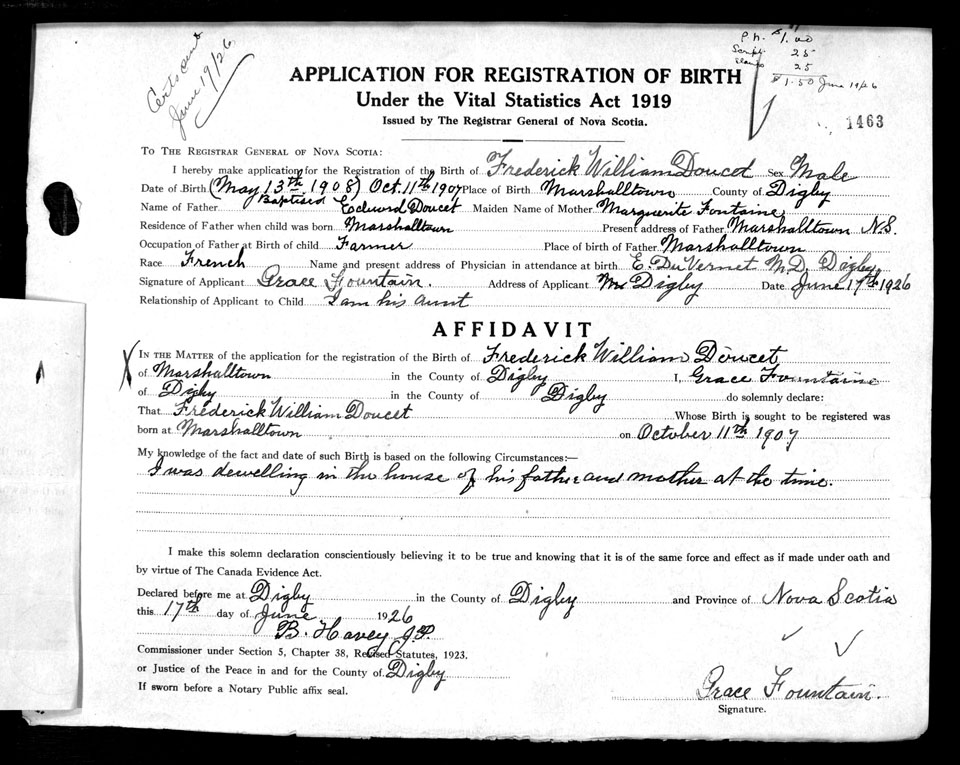 Certs sent
June 19/26
P.N. $1.00
25
25
$1.50 June 19/26
1463
APPLICATION FOR REGISTRATION OF BIRTH
Under the Vital Statistics Act 1919
Issued by The Registrar General of Nova Scotia.
TO THE REGISTRAR GENERAL OF NOVA SCOTIA:
I hereby make application for the Registration of the Birth of Frederick William Doucet Sex Male
Date of Birth (May 13th 1908) Oct. 11th 1907 Place of Birth Marshalltown County of Digby
Baptised
Name of Father Edward Doucet Maiden Name of Mother Marguerite Fontaine
Residence of Father when child was born Marshalltown Present address of Father Marshalltown N.S.
Occupation of Father at Birth of child Farmer Place of birth of Father Marshalltown
Race French Name and present address of Physician in attendance at birth E. DuVernet M.D. Digby
Signature of Applicant Grace Fountain. Address of Applicant Digby Date June 17th 1926
Relationship of Applicant to Child I am his aunt
AFFIDAVIT
X IN THE MATTER of the application for the registration of the Birth of Frederick William Doucet
of Marshalltown in the County of Digby I, Grace Fountaine
of Digby in the County of Digby do solemnly declare:
That Frederick William Doucet Whose Birth is sought to be registered was
born at Marshalltown on October 11th 1907
My knowledge of the fact and date of such Birth is based on the following Circumstances:—
I was dewelling in the house of his father and mother at the time.
I make this solemn declaration conscientiously believing it to be true and knowing that it is of the same force and effect as if made under oath and
by virtue of The Canada Evidence Act.
Declared before me at Digby in the County of Digby and Province of Nova Scotia
this 17th day of June 1926
B. Havey J.P.
Commissioner under Section 5, Chapter 38, Revised Statutes, 1923.
or Justice of the Peace in and for the County of Digby
If sworn before a Notary Public affix seal.
Grace Fountain.
Signature.